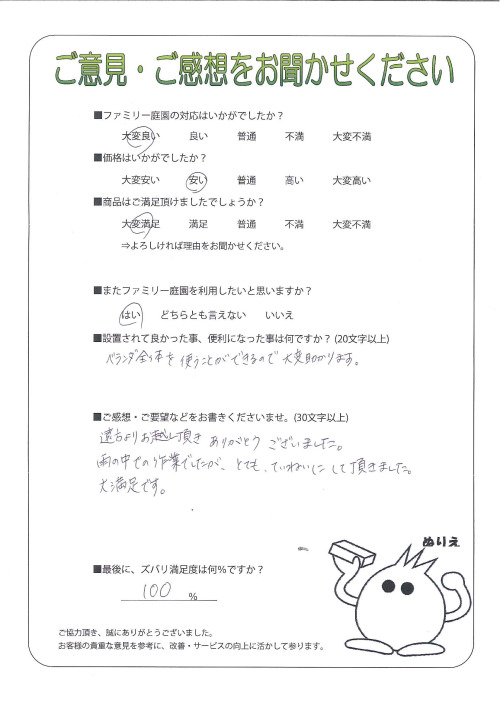 ご意見・ご感想をお聞かせください
■ファミリー庭園の対応はいかがでしたか？
大変良い　良い　普通　不満　大変不満
■価格はいかがでしたか？
大変安い　安い　普通　高い　大変高い
■商品はご満足頂けましたでしょうか？
大変満足　満足　普通　不満　大変不満
⇒よろしければ理由をお聞かせください。
■またファミリー庭園を利用したいと思いますか？
はい　どちらとも言えない　いいえ
■設置されて良かった事、便利になった事は何ですか？(20文字以上)
ベランダ全体を使うことができるので大変助かります。
■ご感想・ご要望などをお書きくださいませ。(30文字以上)
遠方よりお越し頂きありがとうございました。
雨の中での作業でしたが、とても、ていねいにして頂きました。
大満足です。
ぬりえ
■最後に、ズバリ満足度は何％ですか？
100 ％
ご協力頂き、誠にありがとうございました。
お客様の貴重な意見を参考に、改善・サービスの向上に活かして参ります。